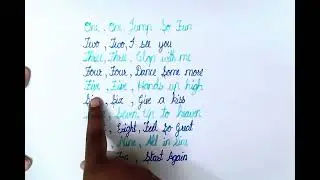 One, One, Jump So Fun
Two, Two, I see you
Three, Three, Clap with me
Four, Four, Dance Some more
Five, Five, Hands in high
Six, Six, Give a kiss
Seven, Up to heaven
Eight, Feel So Great
Nine, All in line
Ten, Start Again